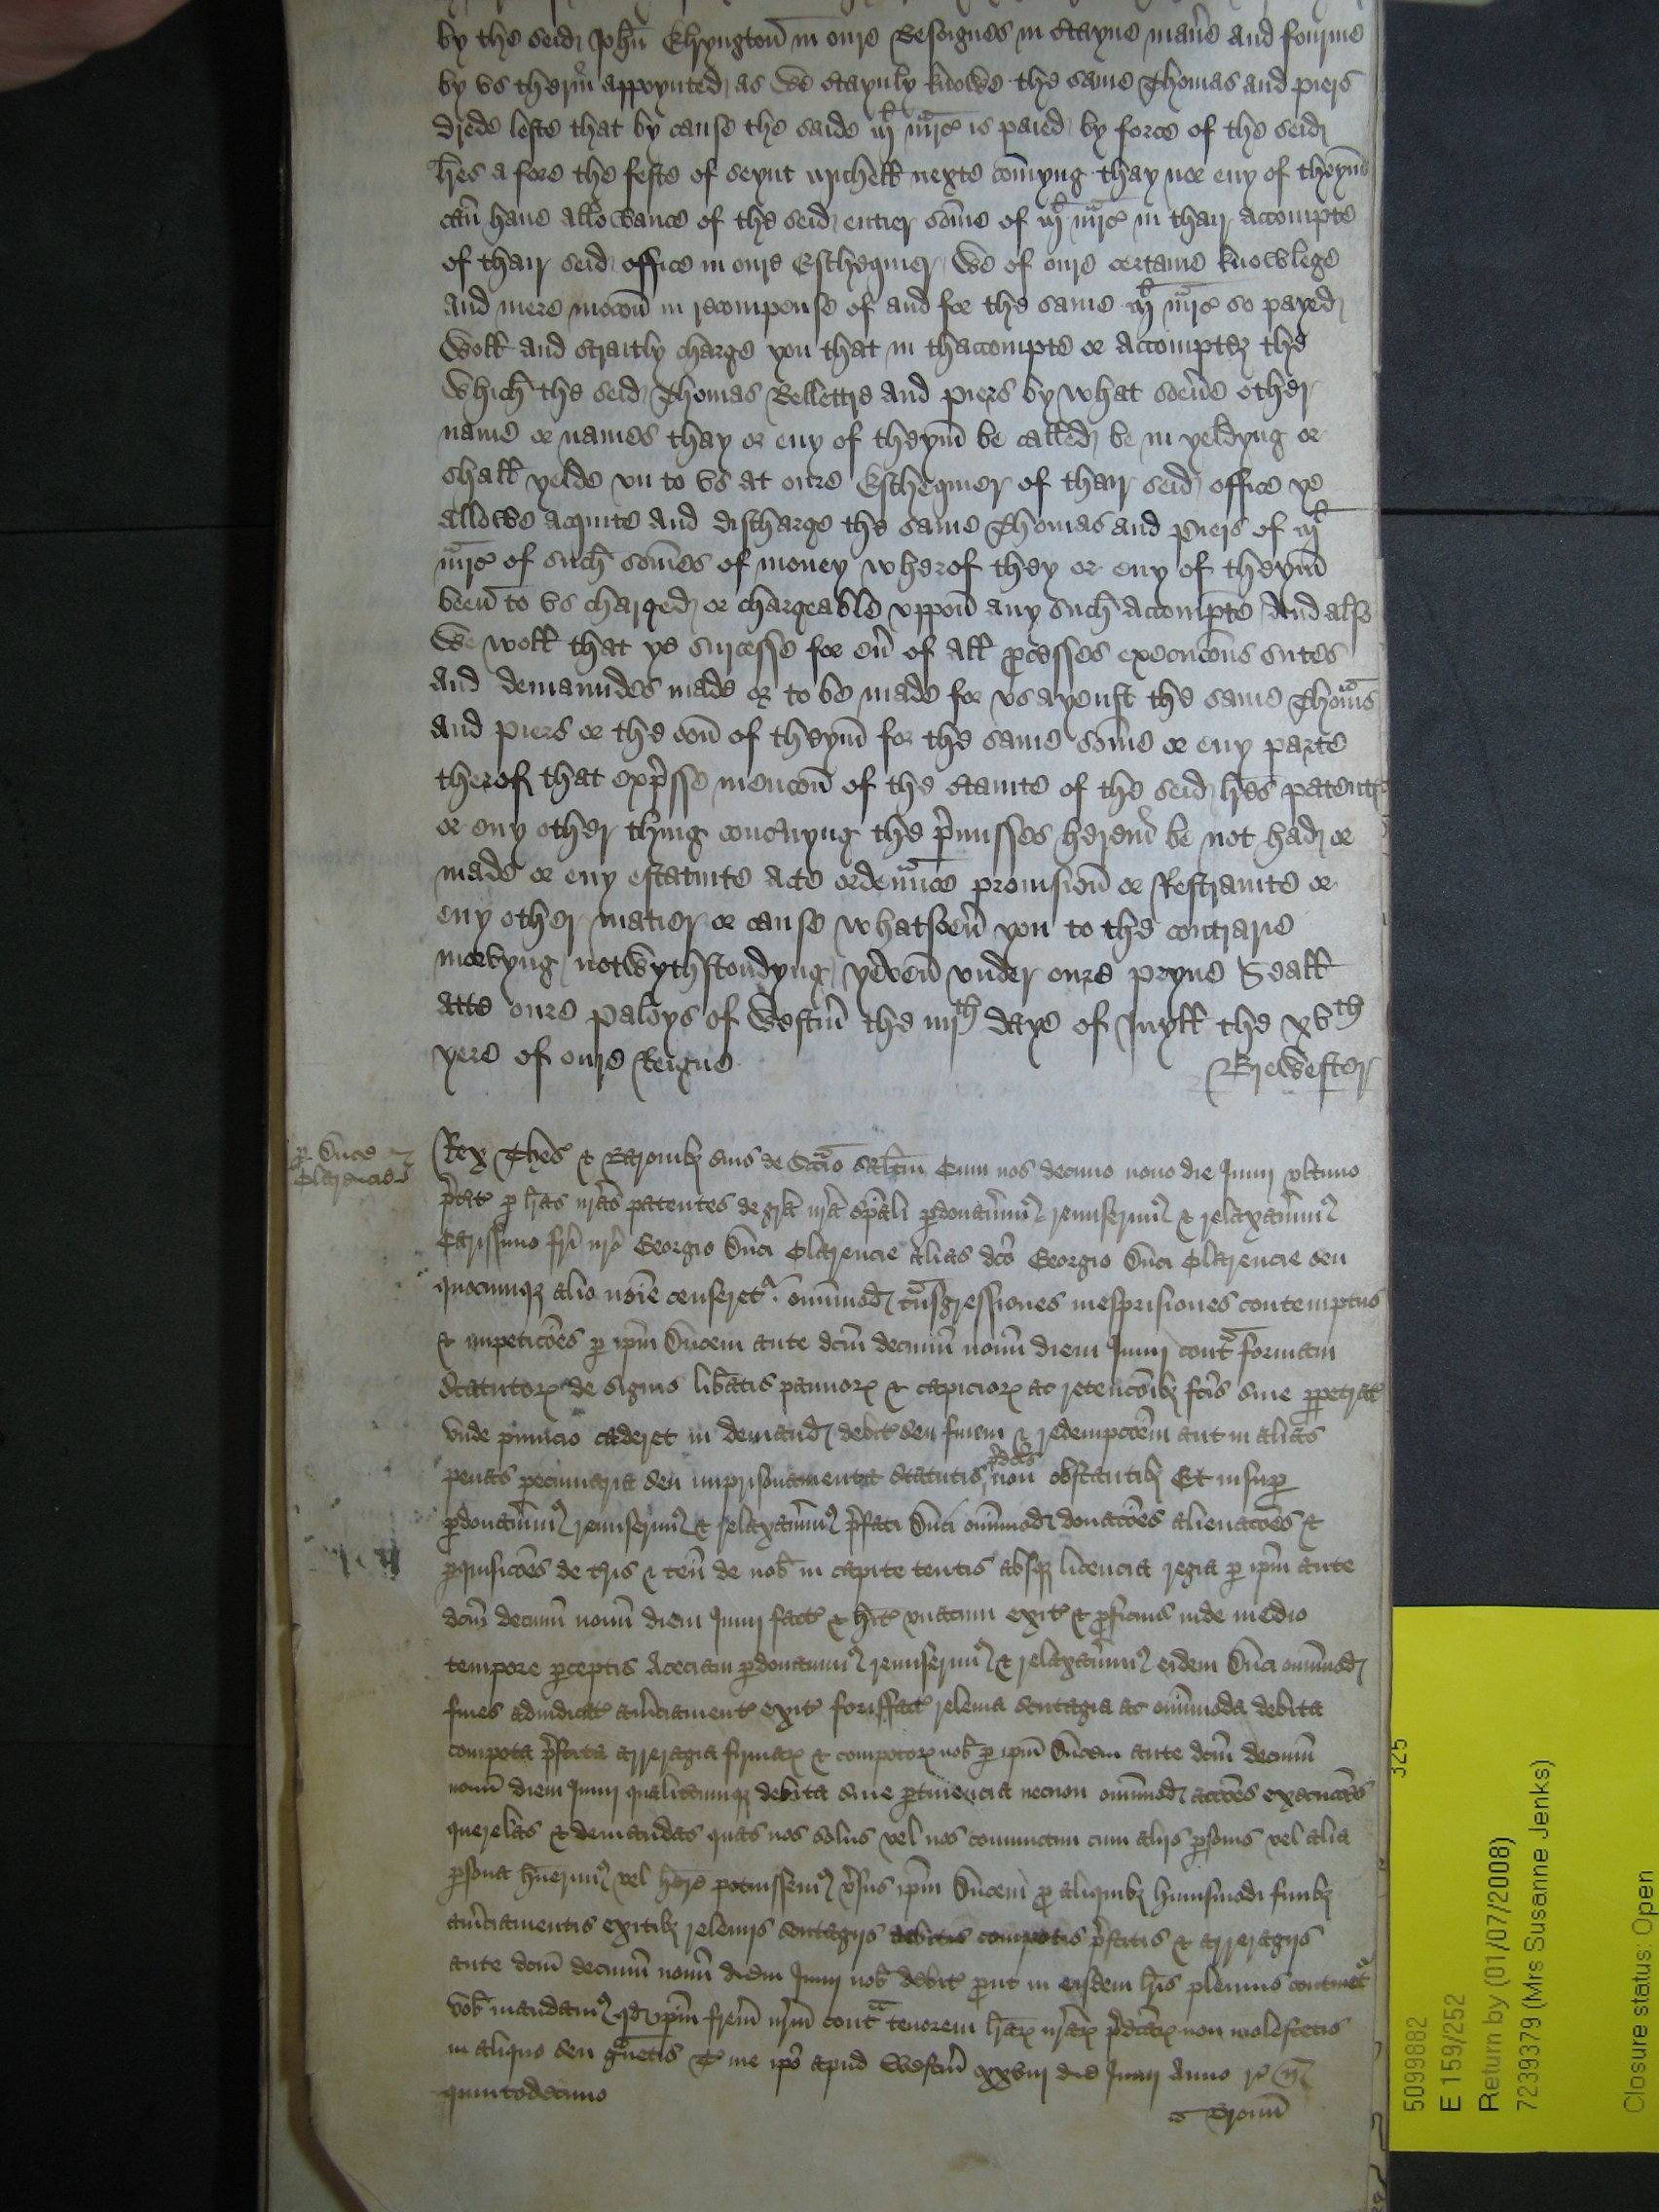 by the seid John Elryngton in oure Besoignes in Ctayne manere and fourme
by vs therin appoynted as we Ctaynly knowe the same Thomas and Piers
drede leste that by cause the saide is paied by force of the seid
lres a fore the feste of seynt Michell nexte comyng thay nor eny of theym
can haue allowance of the seid entier some of in thair accompte
of thair seid office in oure Eschequier We of oure certaine knowlege
and mere mocon in recompense of and for the same so payed
Woll and straitly charge you that in thaccompte or accomptez the
which the seid Thomas and Piers by what soeuere other
name or names thay or eny of theym be called be in yeldyng or
shall yelde vn to vs at oure Eschequier of thair seid office ye
allowe acquite and discharge the same Thomas and Piers of
of such somes of money wherof they or eny of theym
been to vs charged or chargeable vppon any such accompte And also
We woll that ye surcesse for eu of all pcesses execucons sutes
and demaundes made or to be made for vs ayenst the same Thomas
and Piers or the oon of theym for the same some or eny parte
therof that expsse mencon of the of the seid lres patent
or eny other thing conCnyng the pmisses herein be not had or
made or eny estatute acte ordenance prouision or Restrainte or
eny other matier or cause whatsoeu you to the contrarie
mevyng notwythstondyng yeven vnder oure pryue Seall
atte oure Paloys of Westm the iiijth daye of Juyll the xvth
yere of oure Reigne
Brewester
p Duce
Clarencie
Rex Thes & Baronibz suis de Sccio saltm Cum nos decimo nono die Junij vltimo
ptit p lras nras patentes de gra nra spali pdonauim remiserim & relaxauim
Carissimo fri nro Georgio Duci Clarencie alias dco Georgio Duci Clarencie seu
quocumqz alio noie censeret omimod tnsgressiones mesprisiones contemptus
& impeticoes p ipm Ducem ante dcm decimu nonu diem Junij cont formam
Statutor de signis libatis pannor & capicior ac retencoibz fcis siue ppetrat
vnde punicio caderet in demand debit seu finem & redempcoem aut in alias
penas pecuniaria seu imprisonamenta statutis pdcis non obstantibz Et insup
pdonauim remiserim & relaxauim pfati Duci omimod donacoes alienacoes &
pquisicoes de tris & ten de nob in capite tentis absqz licencia regia p ipm ante
dcm decimu nonu diem Junij fact & hit vnacum exit & pficuis inde medio
tempore pceptis Aceciam pdonauim remiserim & relaxauim eidem Duci omimod
fines adiudicat amciament exit forisfact releuia scutagia ac omimoda debita
compota pstita arreragia firmar & compotor nob p ipm Ducem ante dcm decimu
nonu diem Junij qualitcumqz debita siue ptinencia necnon omimod accoes execucoes
querelas & demandas quas nos solus vel nos coniunctim cum alijs psonis vel alia
psona huerim vel here potuissem vsus ipm Ducem p aliquibz huiusmodi finibz
amciamentis exitibz releuijs scutagijs debitis compotis pstitis & arreragijs
ante dcm decimu nonu diem Junij nob debit put in eisdem lris plenius continet
vob mandam qd ipm frem nrm cont tenorem lrar nrar pdcar non molestetis
in aliquo seu guetis T me ipo apud Westm xxviij die Junij Anno r n
quintodecimo
Bronn
325
5099882
E 159/252
Return by (01/07/2008)
7239379 (Mrs Susanne Jenks)
Closure status: Open